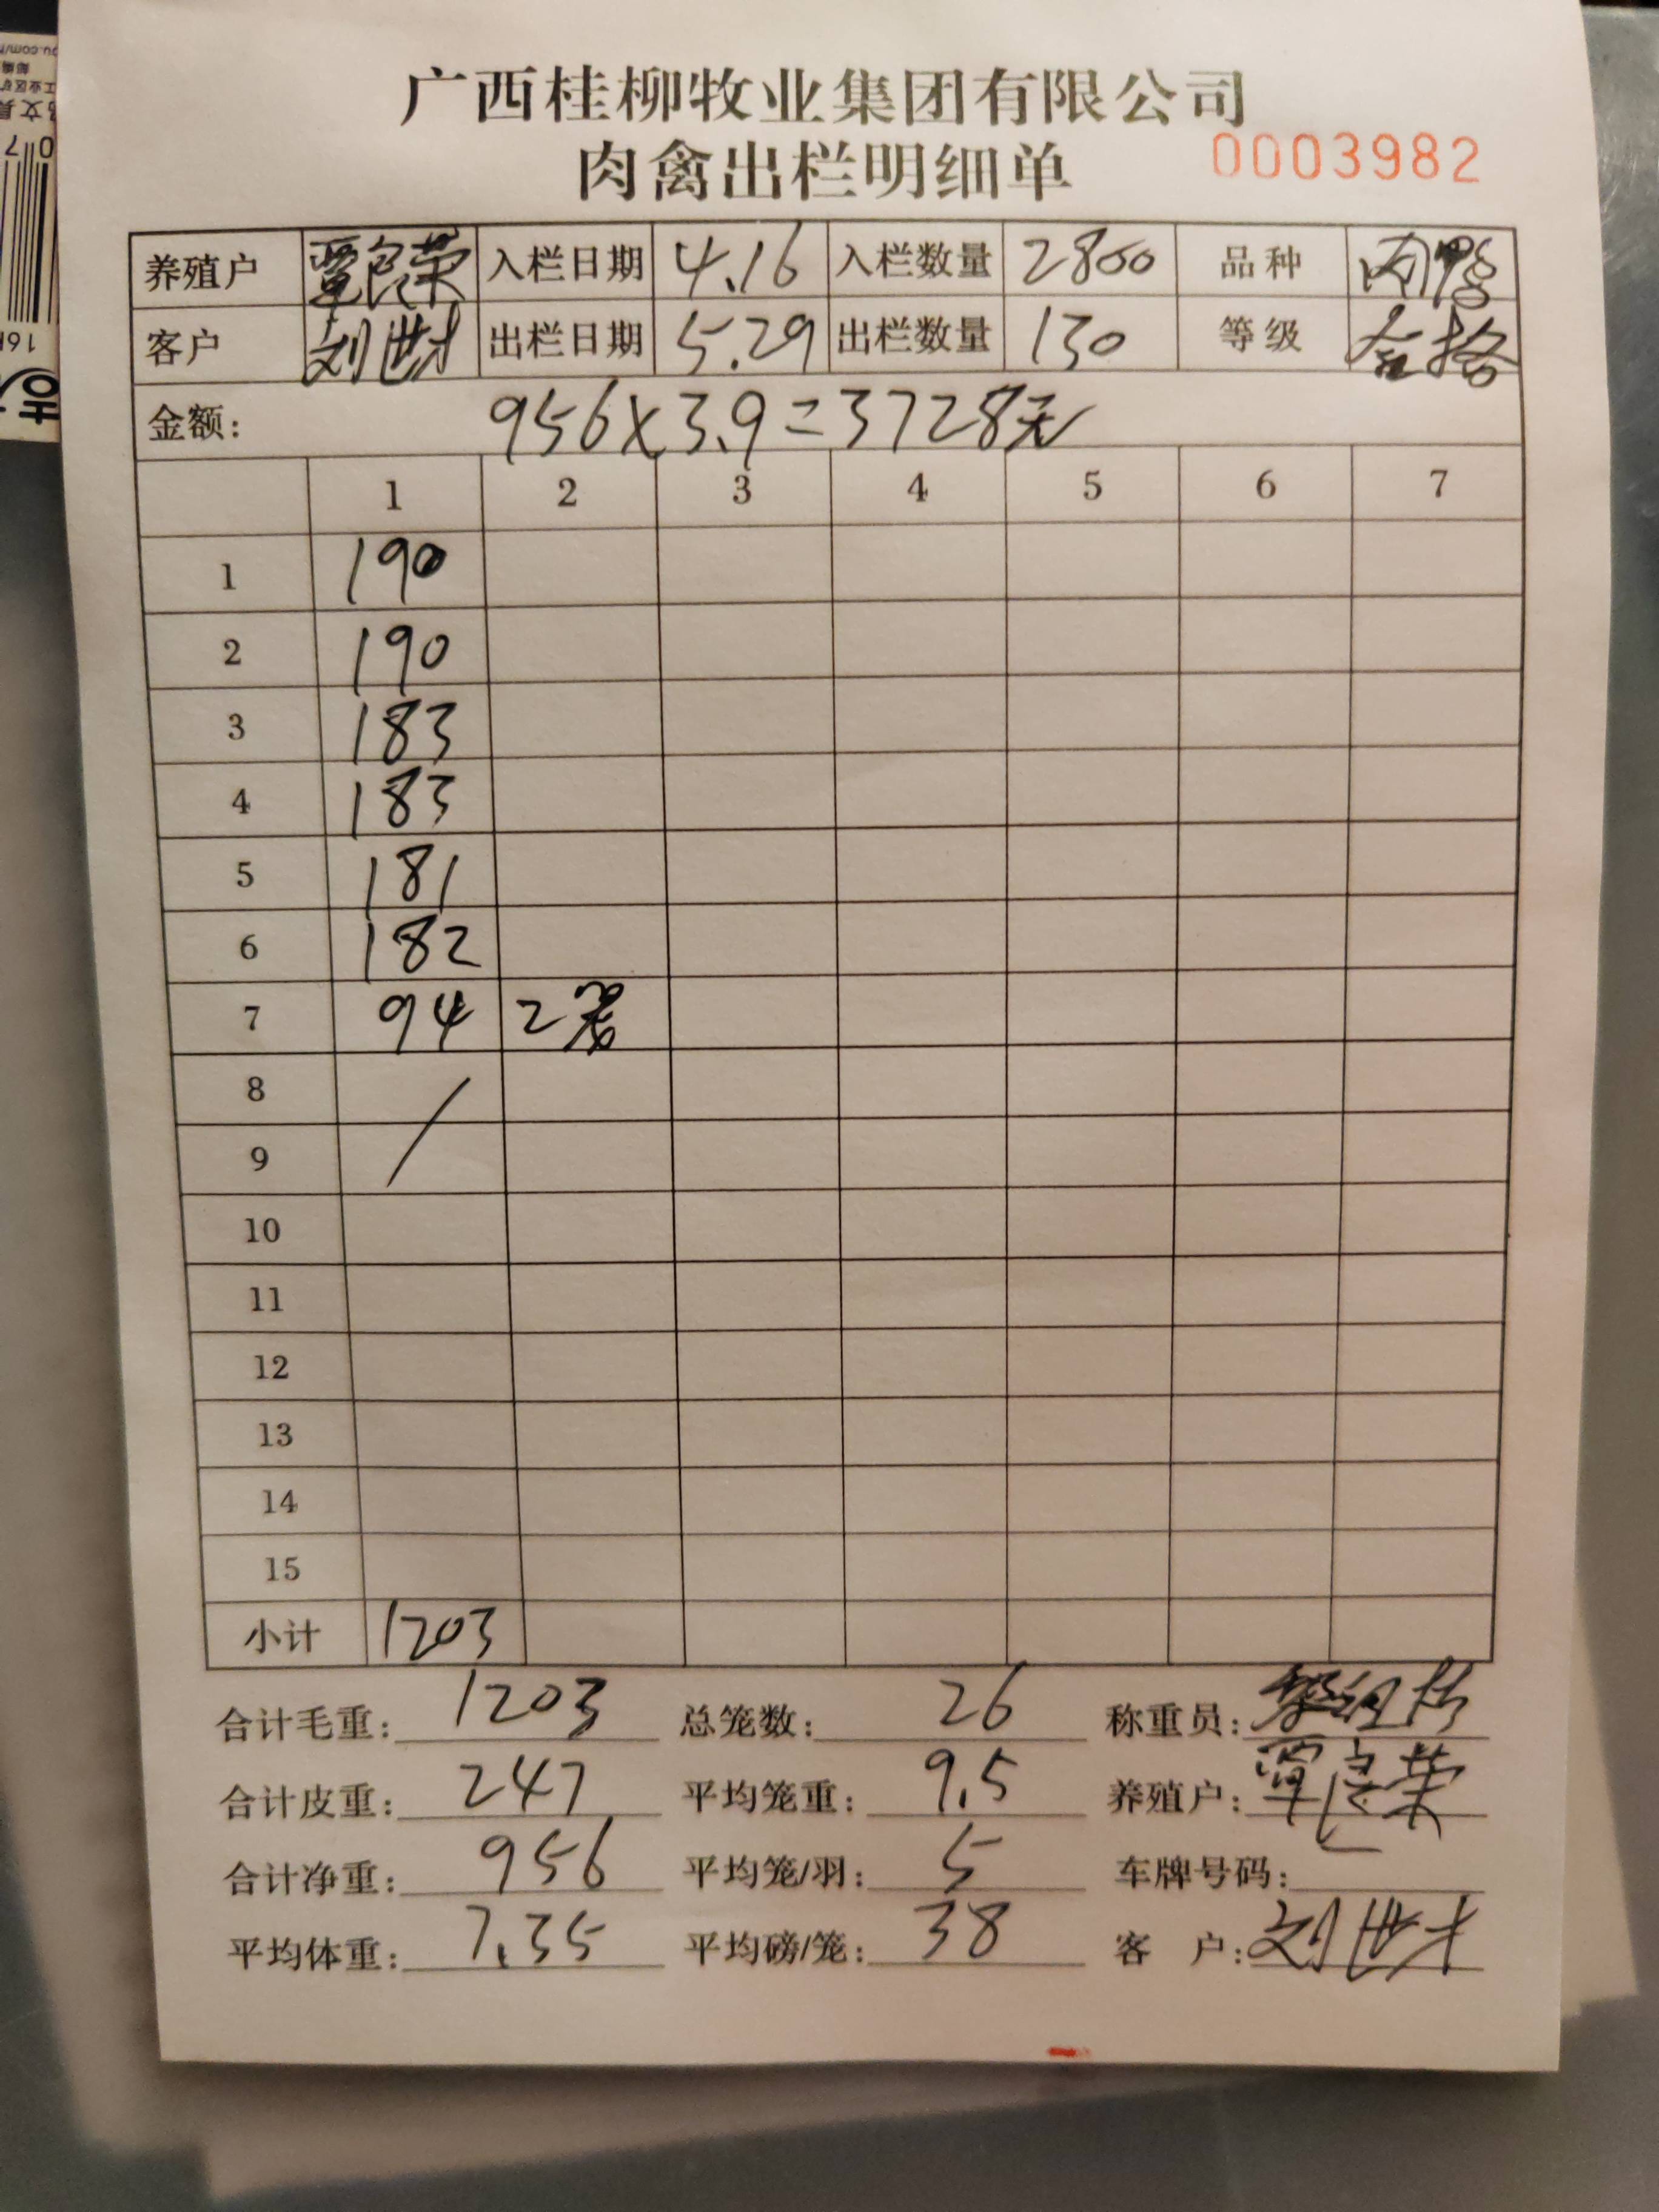 广西桂柳牧业集团有限公司
肉禽出栏明细单 0003982
养殖户 覃良荣 入栏日期 4.16 入栏数量 2800 品种 肉鸭
客户 刘世才 出栏日期 5.29 出栏数量 130 等级 合格
金额: 956×3.9=3728元
1 2 3 4 5 6 7
1 190
2 190
3 183
4 183
5 181
6 182
7 94 2笼
8
9
10
11
12
13
14
15
小计 1203
合计毛重: 1203 总笼数: 26 称重员:
合计皮重: 247 平均笼重: 9.5 养殖户: 覃良荣
合计净重: 956 平均笼/羽: 5 车牌号码:
平均体重: 7.35 平均磅/笼: 38 客 户: 刘世才